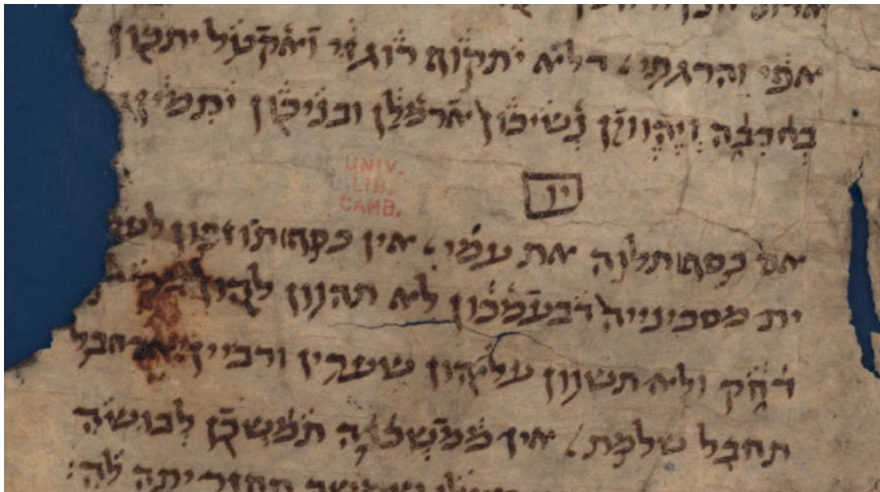 אפי והרגתי דלא יתקוף רוגזי ואקטל יתכון
בחרבה ויהוויין נשיכון ארמלן ובניכון יתמין
יו
UNIV.
LIB.
CAMB.
אם כסף תלוה את עמי אין כסף תוזפון
ית מסכינייה דבעמכון לא תהוון להון
דחק ולא תשוון עליהון שערין ורביין אם חבל
תחבל שלמת אין ממשכנה תמשכן לבושיה
תחזר יתה לה׃